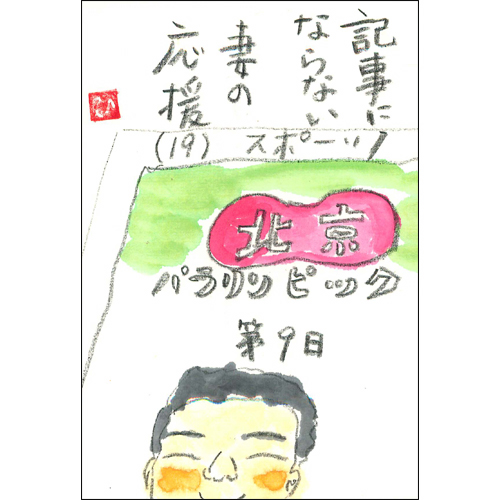 記事に
ならない
妻の
応援
(19) スポーツ
北京
パラリンピック
第9日